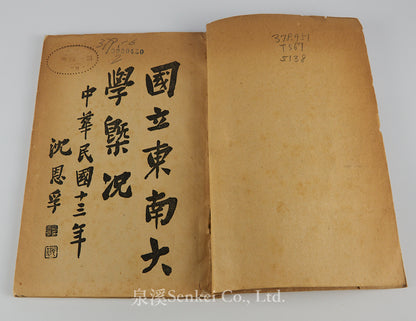 國立東南大
學槩況
中華民國十三年
沈恩孚
378.951
T569
5138
泉溪Senkei Co., Ltd.